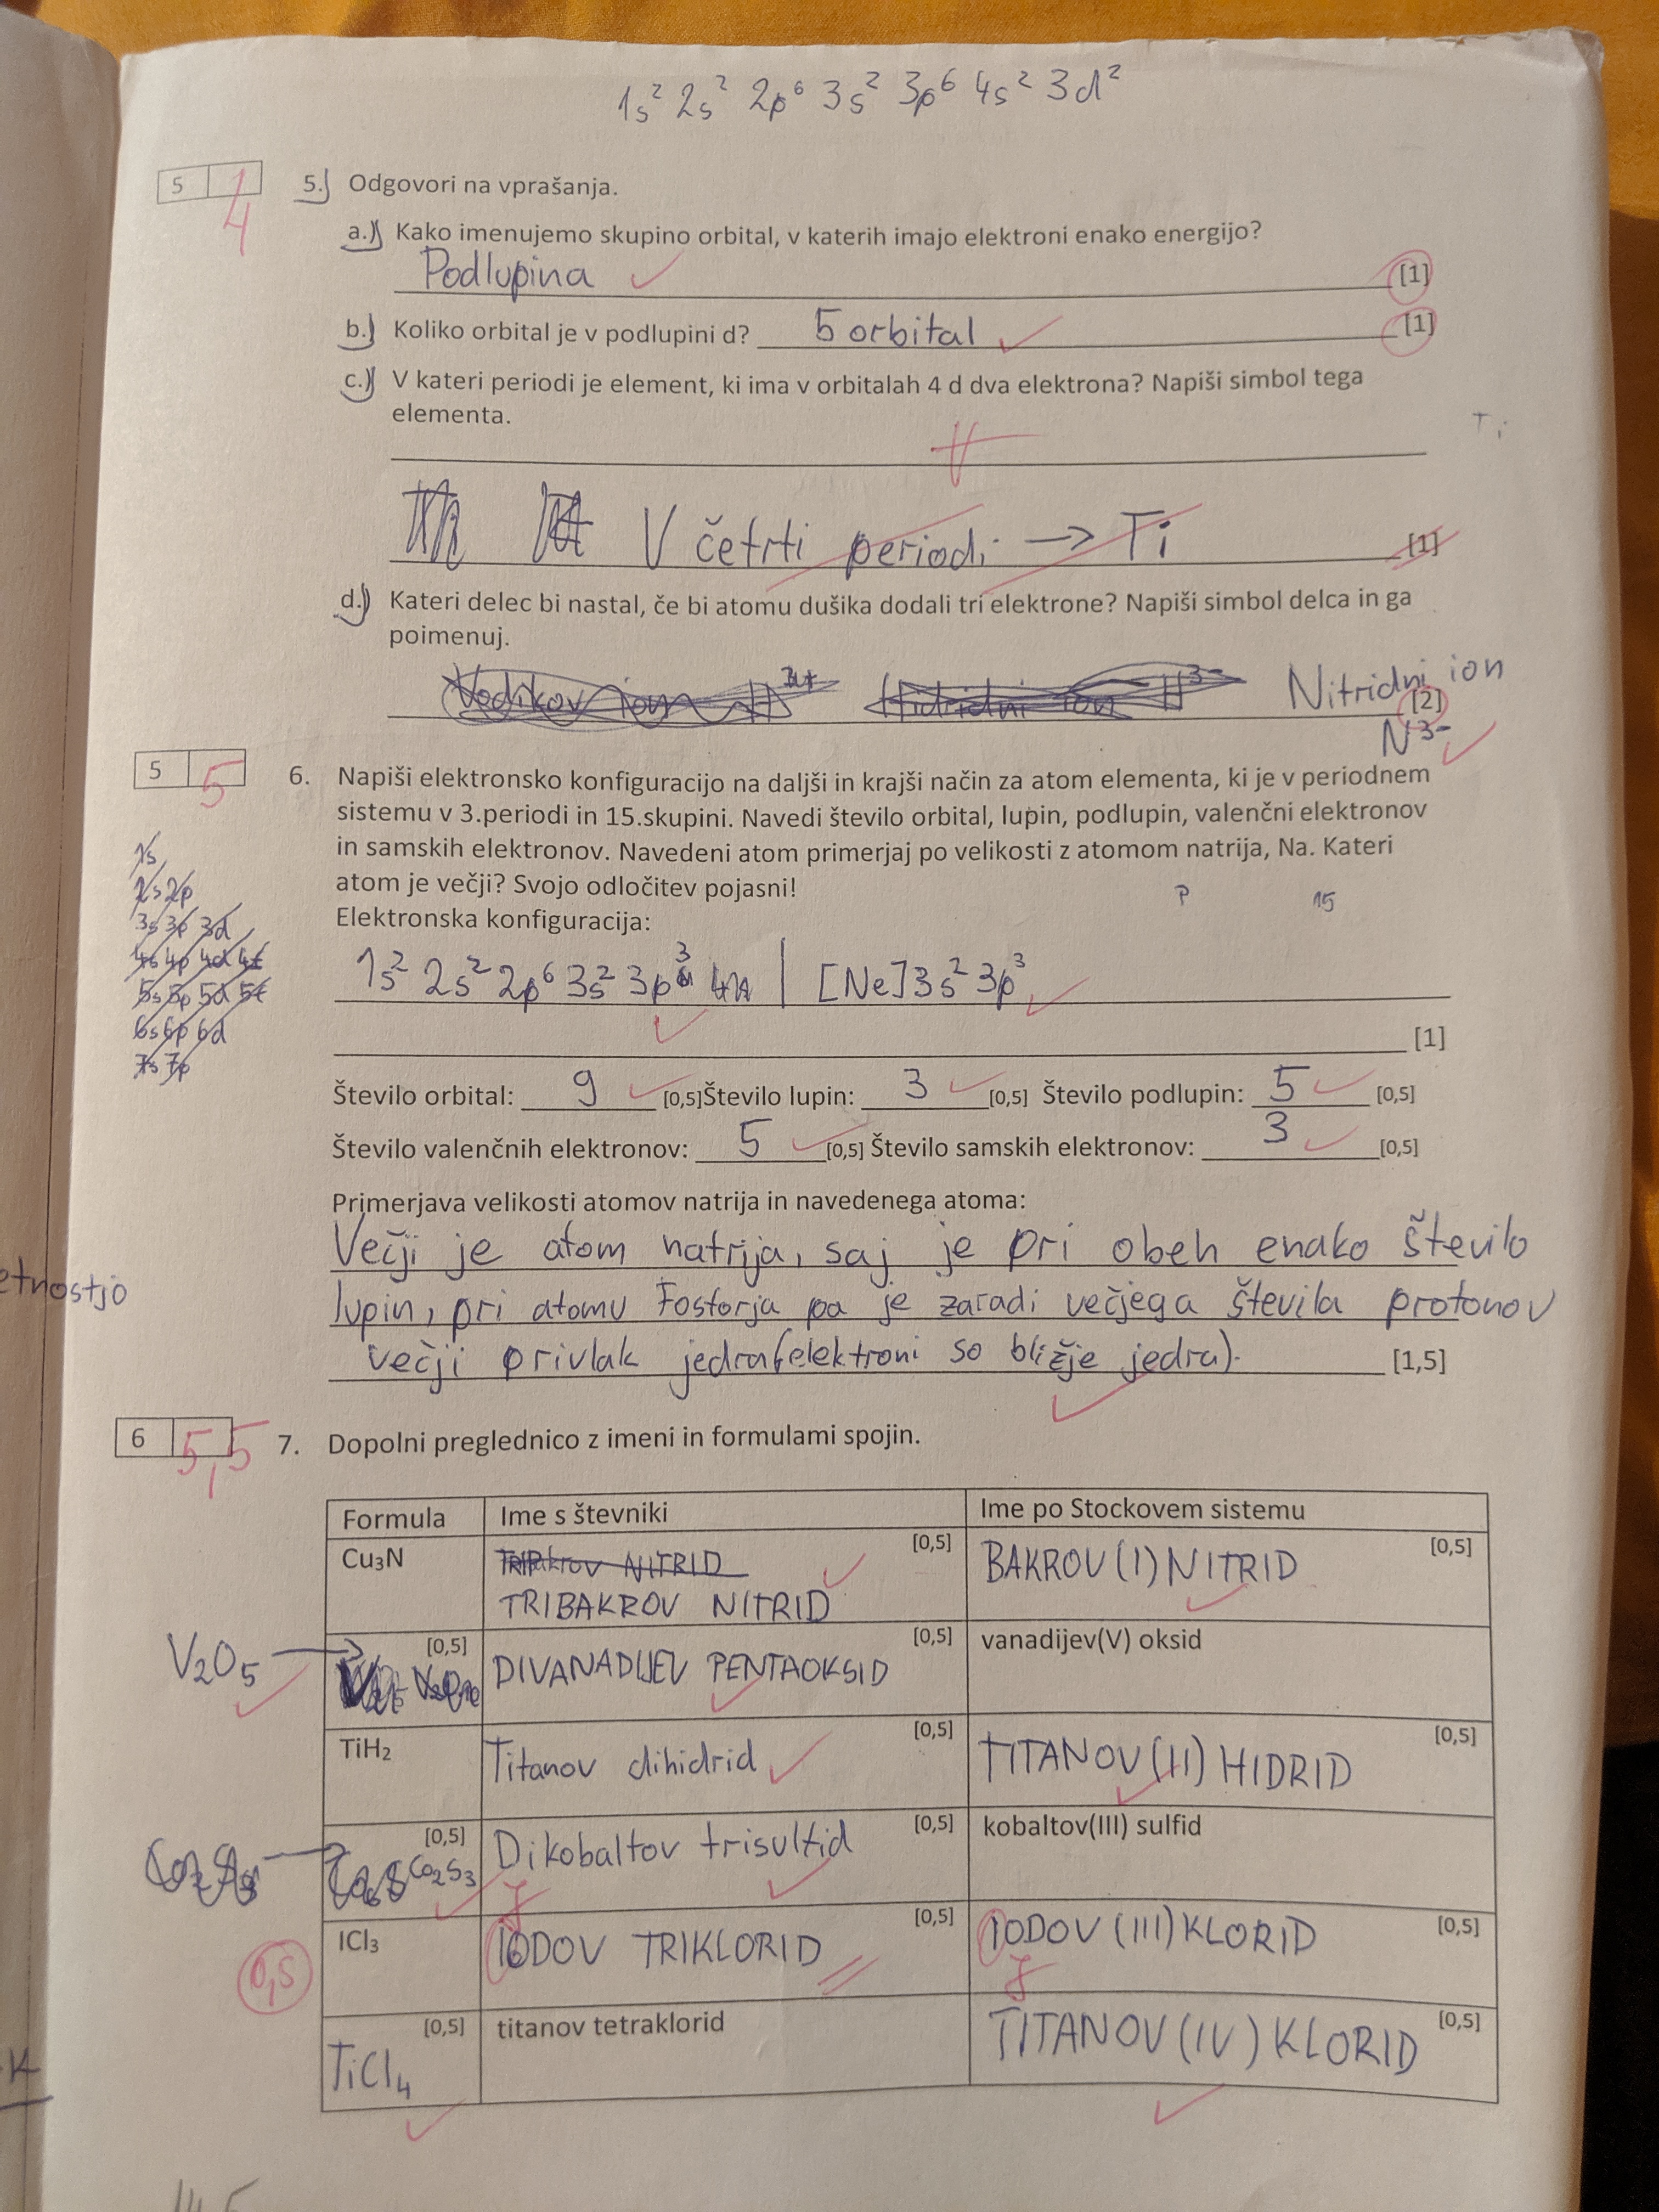 1s² 2s² 2p⁶ 3s² 3p⁶ 4s² 3d²
5 4
5.) Odgovori na vprašanja.
a.) Kako imenujemo skupino orbital, v katerih imajo elektroni enako energijo?
Podlupina [1]
b.) Koliko orbital je v podlupini d? 5 orbital [1]
c.) V kateri periodi je element, ki ima v orbitalah 4 d dva elektrona? Napiši simbol tega
elementa.
Ti
V četrti periodi → Ti [1]
d.) Kateri delec bi nastal, če bi atomu dušika dodali tri elektrone? Napiši simbol delca in ga
poimenuj.
Vodikov ion H³⁺ Hidridni ion H³⁻ Nitridni ion
[2]
N³⁻
5 5
6. Napiši elektronsko konfiguracijo na daljši in krajši način za atom elementa, ki je v periodnem
sistemu v 3.periodi in 15.skupini. Navedi število orbital, lupin, podlupin, valenčni elektronov
in samskih elektronov. Navedeni atom primerjaj po velikosti z atomom natrija, Na. Kateri
atom je večji? Svojo odločitev pojasni!
P 15
Elektronska konfiguracija:
1s
2s 2p
3s 3p 3d
4s 4p 4d 4f
5s 5p 5d 5f
6s 6p 6d
7s 7p
1s² 2s² 2p⁶ 3s² 3p³ | [Ne]3s² 3p³
[1]
Število orbital: 9 [0,5] Število lupin: 3 [0,5] Število podlupin: 5 [0,5]
Število valenčnih elektronov: 5 [0,5] Število samskih elektronov: 3 [0,5]
Primerjava velikosti atomov natrija in navedenega atoma:
Večji je atom natrija, saj je pri obeh enako število
lupin, pri atomu Fosforja pa je zaradi večjega števila protonov
večji privlak jedra (elektroni so bližje jedra). [1,5]
etnostjo
6 5,5
7. Dopolni preglednico z imeni in formulami spojin.
Formula Ime s števniki Ime po Stockovem sistemu
Cu₃N [0,5] BAKROV (I) NITRID [0,5]
TRIBAKROV NITRID
V₂O₅ → [0,5] DIVANADIJEV PENTAOKSID [0,5] vanadijev(V) oksid
TiH₂ Titanov dihidrid [0,5] TITANOV (II) HIDRID [0,5]
[0,5] Co₂S₃ Dikobaltov trisulfid [0,5] kobaltov(III) sulfid
J J
ICl₃ IODOV TRIKLORID [0,5] IODOV (III) KLORID [0,5]
0,5
[0,5] titanov tetraklorid TITANOV (IV) KLORID [0,5]
TiCl₄